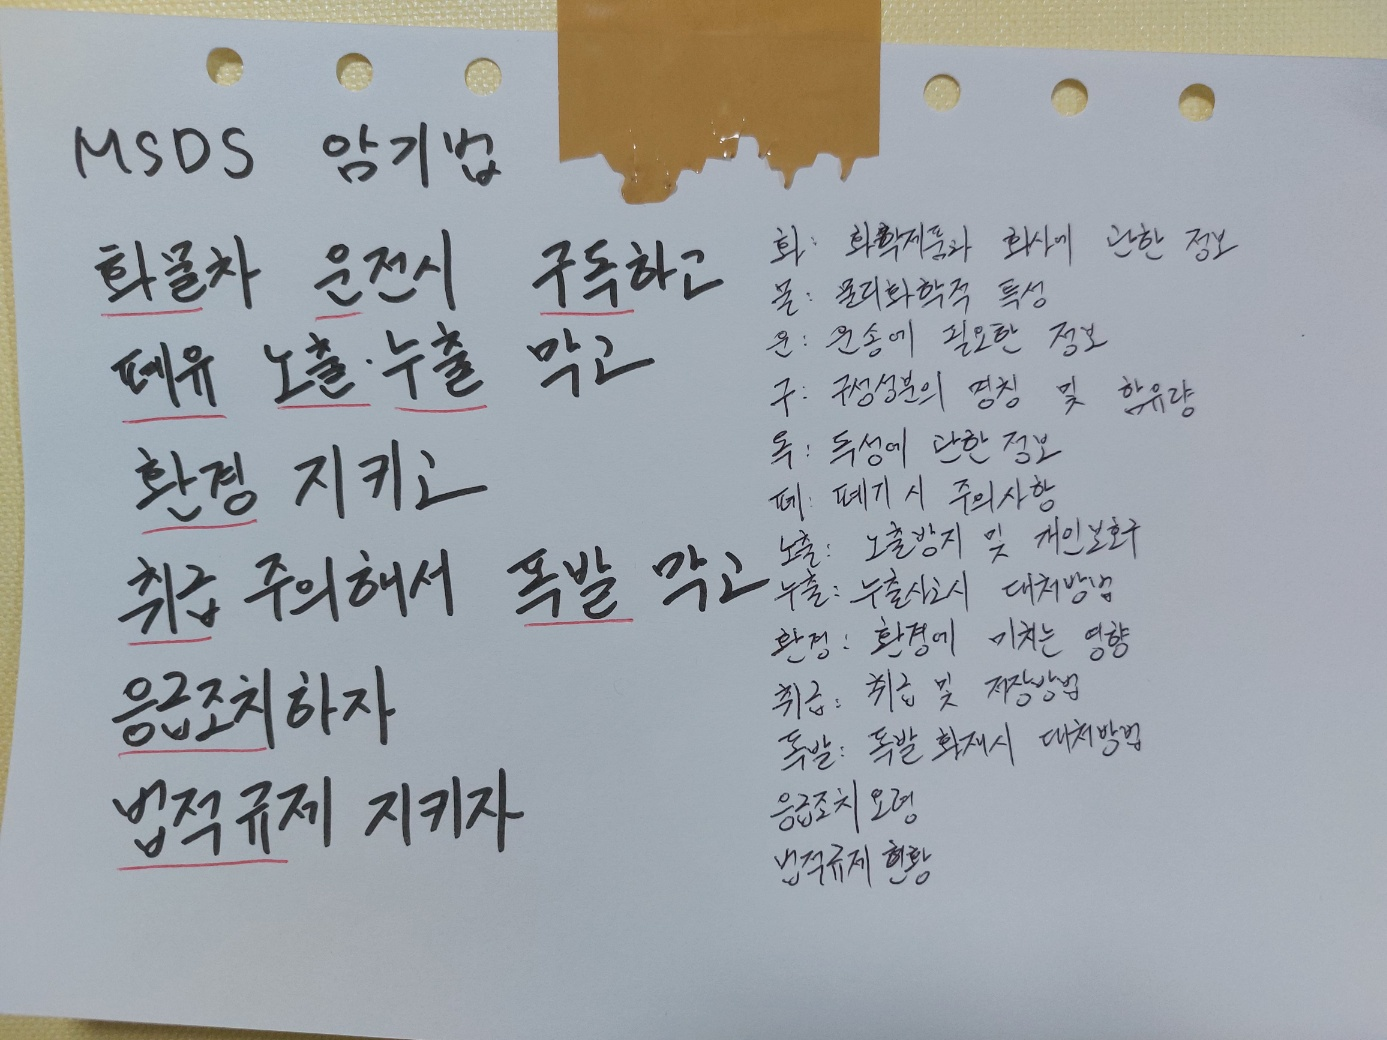 MSDS 암기법
화물차 운전시 구독하고
폐유 노출·누출 막고
환경 지키고
취급 주의해서 폭발 막고
응급조치하자
법적규제 지키자
화: 화학제품과 회사에 관한 정보
물: 물리화학적 특성
운: 운송에 필요한 정보
구: 구성성분의 명칭 및 함유량
독: 독성에 관한 정보
폐: 폐기 시 주의사항
노출: 노출방지 및 개인보호구
누출: 누출사고시 대처방법
환경: 환경에 미치는 영향
취급: 취급 및 저장방법
폭발: 폭발 화재시 대처방법
응급조치 요령
법적규제 현황